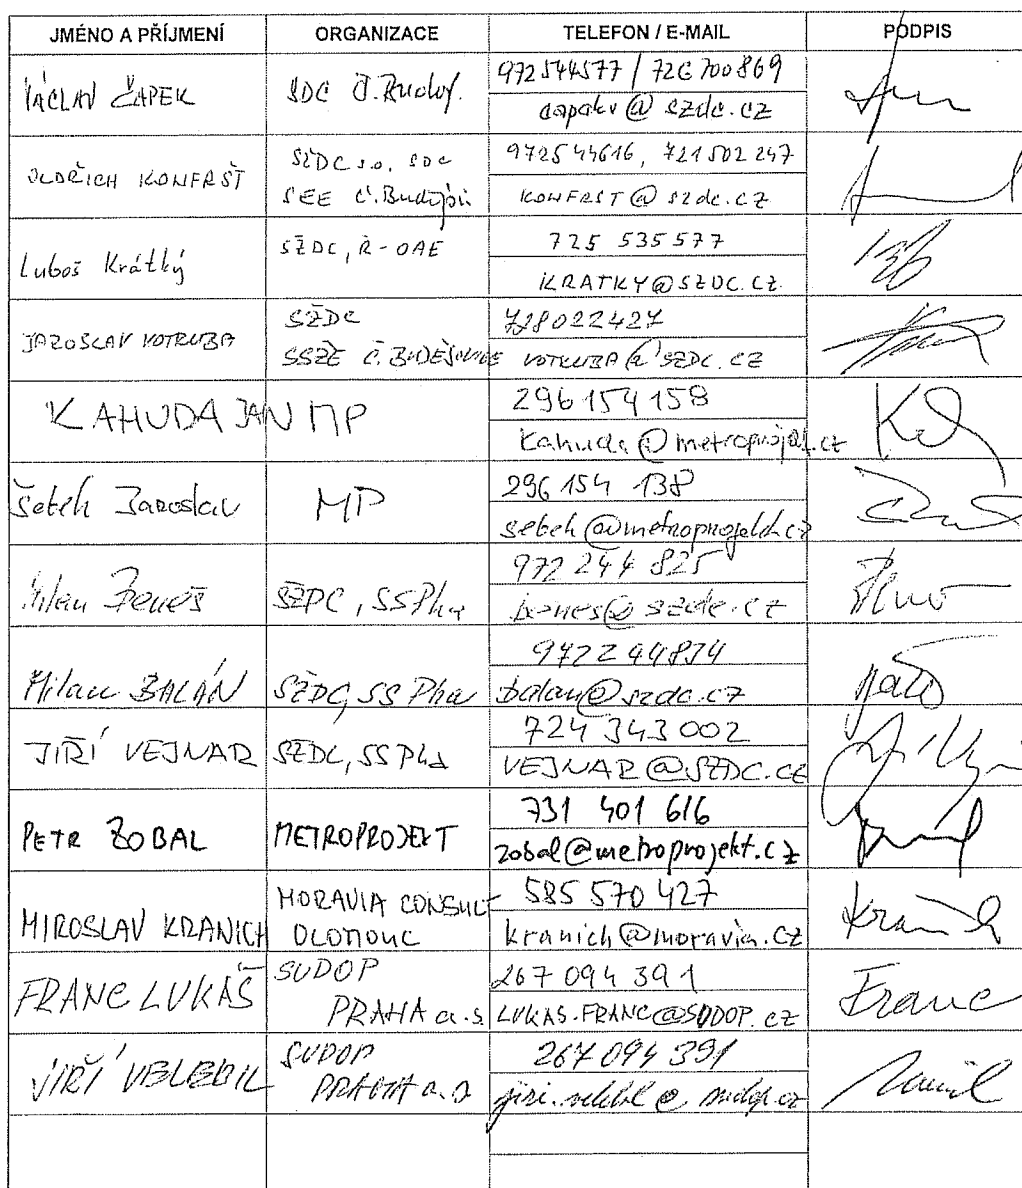 JMÉNO A PŘÍJMENÍ ORGANIZACE TELEFON / E-MAIL PODPIS
VÁCLAV ČAPEK SDC Č. Buděj. 972544577 / 726 700 869
capekv@szdc.cz
OLDŘICH KONFRŠT SŽDC s.o. SDC 972544616, 721502247
SEE Č. Budějov. KONFRST@szdc.cz
Luboš Krátký SŽDC, Ř-OAE 725 535 577
KRATKY@SZDC.CZ
JAROSLAV VOTRUBA SŽDC 728022427
SSZE Č. BUDĚJOVICE VOTRUBA@SZDC.CZ
KAHUDA JAN MP 296 154 158
kahuda@metroprojekt.cz
Šebek Jaroslav MP 296 154 138
sebek@metroprojekt.cz
Milan Beneš SŽDC, SS Pha 972 244 825
benes@szdc.cz
Milan BALÁN SŽDC, SS Pha 972244834
balan@szdc.cz
JIŘÍ VEJNAR SŽDC, SS Pha 724 343 002
VEJNAR@SZDC.CZ
PETR ZOBAL METROPROJEKT 731 401 616
zobal@metroprojekt.cz
MIROSLAV KRANICH MORAVIA CONSULT 585 570 427
OLOMOUC kranich@moravia.cz Kranich
FRANC LUKÁŠ SUDOP 267 094 391
PRAHA a.s. LUKAS.FRANC@SUDOP.CZ Franc
JIŘÍ VELEBIL SUDOP 267 094 391
PRAHA a.s. jiri.velebil@sudop.cz